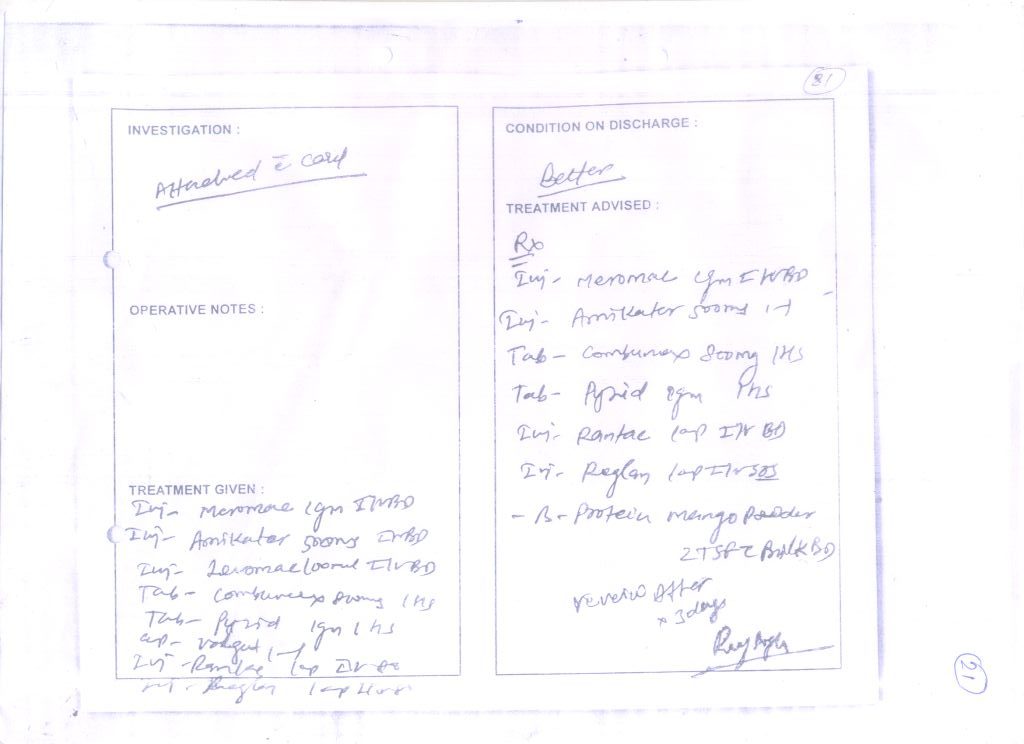 81
INVESTIGATION :
Attached c̄ card
OPERATIVE NOTES :
TREATMENT GIVEN :
Inj- Meromac 1gm I/V BD
Inj- Amikater 500mg
Inj- 100ml I/V BD
Tab- Combunex 800mg 1HS
Tab- Pyzid 1gm 1 HS
cap-
Inj- Rantac 1amp I/V
Inj- Reglan 1amp
CONDITION ON DISCHARGE :
Better
TREATMENT ADVISED :
Rx
Inj- Meromac 1gm I/V BD
Inj- Amikater 500mg
Tab- Combunex 800mg 1HS
Tab- Pyzid 1HS
Inj- Rantac 1amp I/V BD
Inj- Reglan 1amp I/V SOS
- B-Protein Mango Powder
2TSF c̄ Milk BD
Review After
x 3 days
21